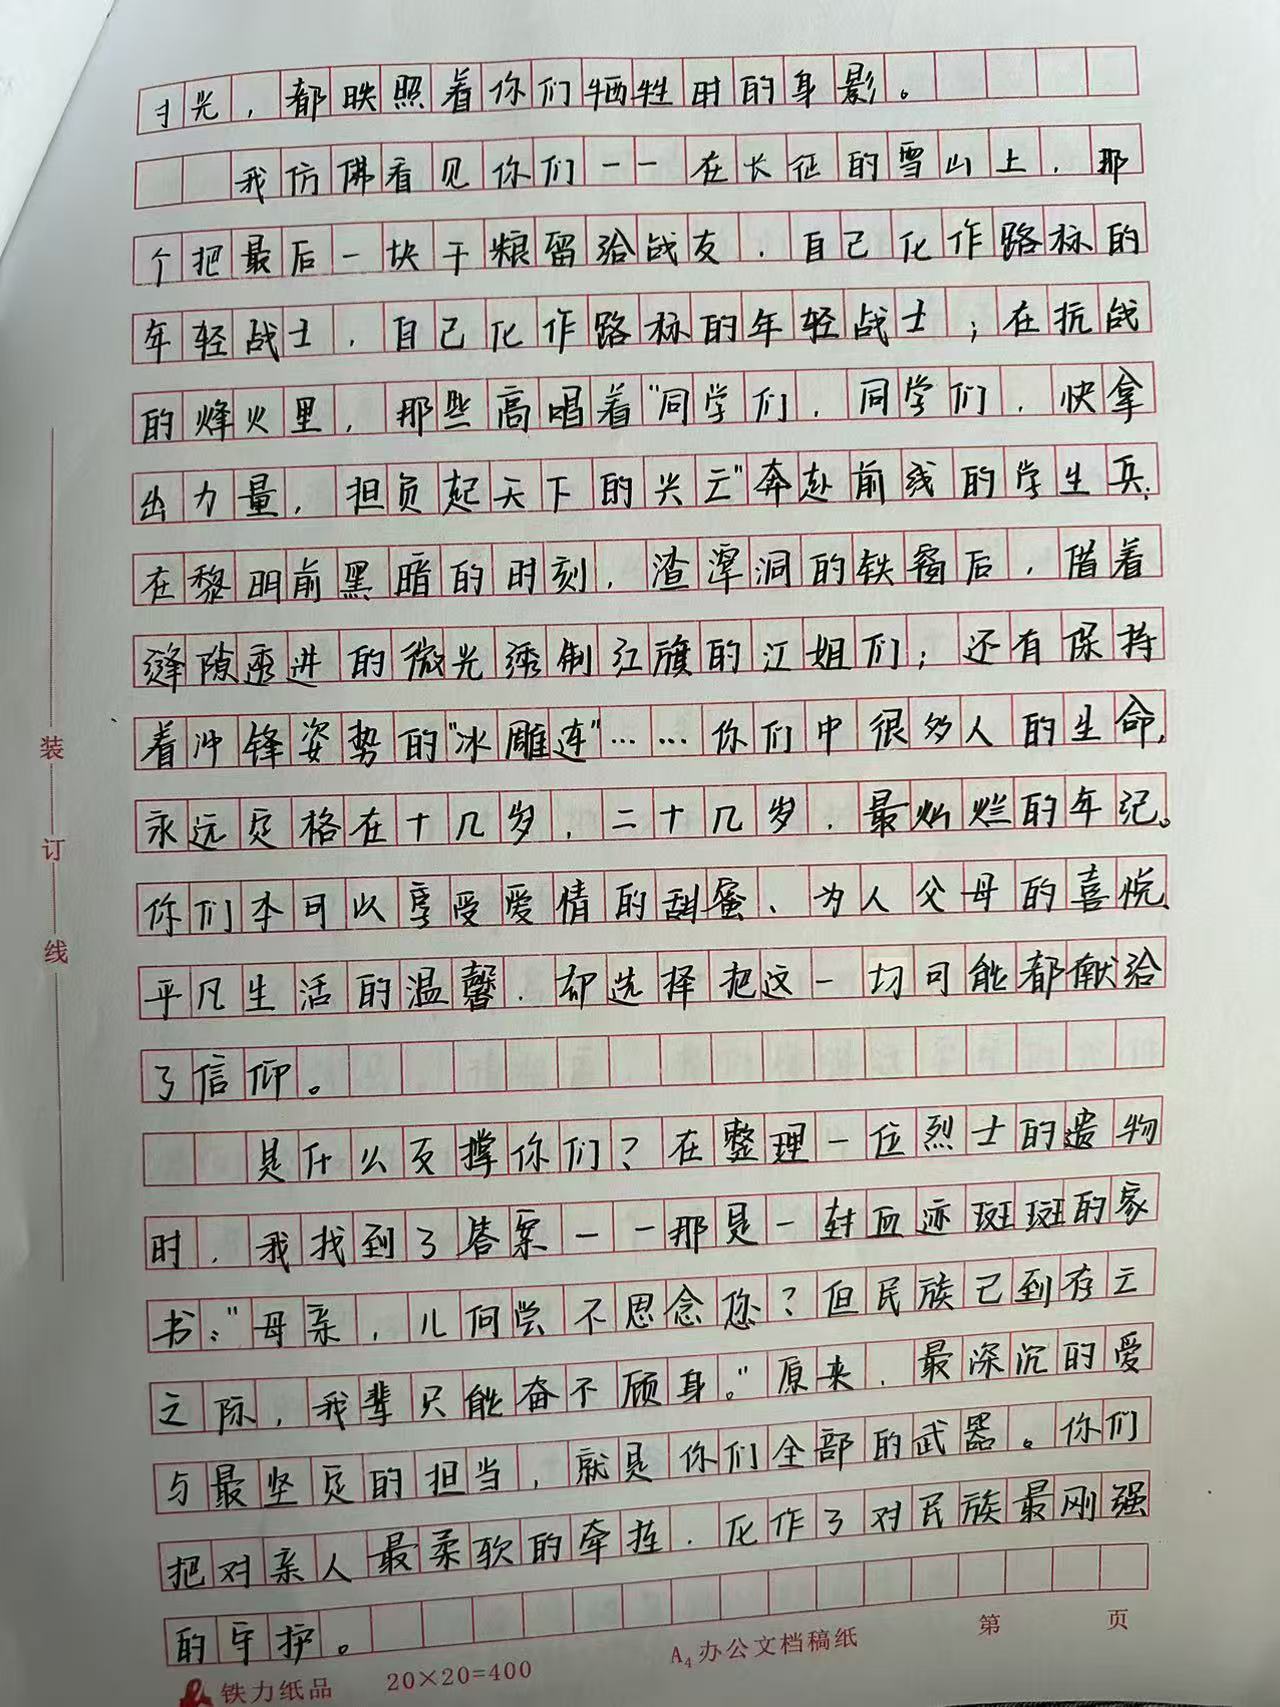 寸光，都映照着你们牺牲时的身影。
我仿佛看见你们——在长征的雪山上，那
个把最后一块干粮留给战友，自己化作路标的
年轻战士，自己化作路标的年轻战士；在抗战
的烽火里，那些高唱着"同学们，同学们，快拿
出力量，担负起天下的兴亡"奔赴前线的学生兵；
在黎明前黑暗的时刻，渣滓洞的铁窗后，借着
缝隙透进的微光绣制红旗的江姐们；还有保持
着冲锋姿势的"冰雕连"……你们中很多人的生命，
永远定格在十几岁，二十几岁，最灿烂的年纪。
你们本可以享受爱情的甜蜜、为人父母的喜悦、
平凡生活的温馨，却选择把这一切可能都献给
了信仰。
是什么支撑你们？在整理一位烈士的遗物
时，我找到了答案——那是一封血迹斑斑的家
书："母亲，儿何尝不思念您？但民族已到存亡
之际，我辈只能奋不顾身。"原来，最深沉的爱
与最坚定的担当，就是你们全部的武器。你们
把对亲人最柔软的牵挂，化作了对民族最刚强
的守护。
装
订
线
铁力纸品 20×20=400 A4办公文档稿纸 第 页